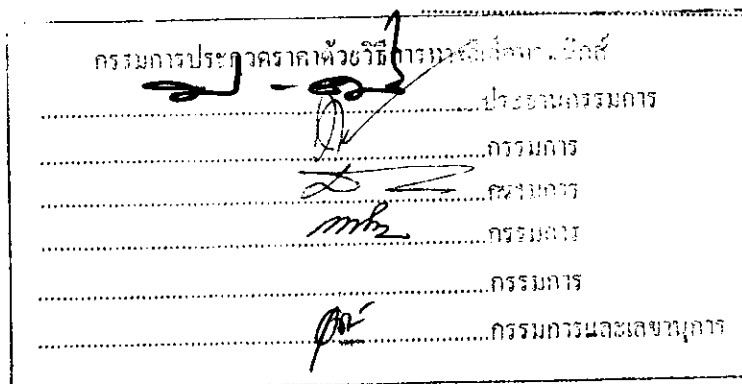 กรรมการประกวดราคาด้วยวิธีการทางอิเล็กทรอนิกส์
....................ประธานกรรมการ
....................กรรมการ
....................กรรมการ
....................กรรมการ
....................กรรมการ
....................กรรมการและเลขานุการ